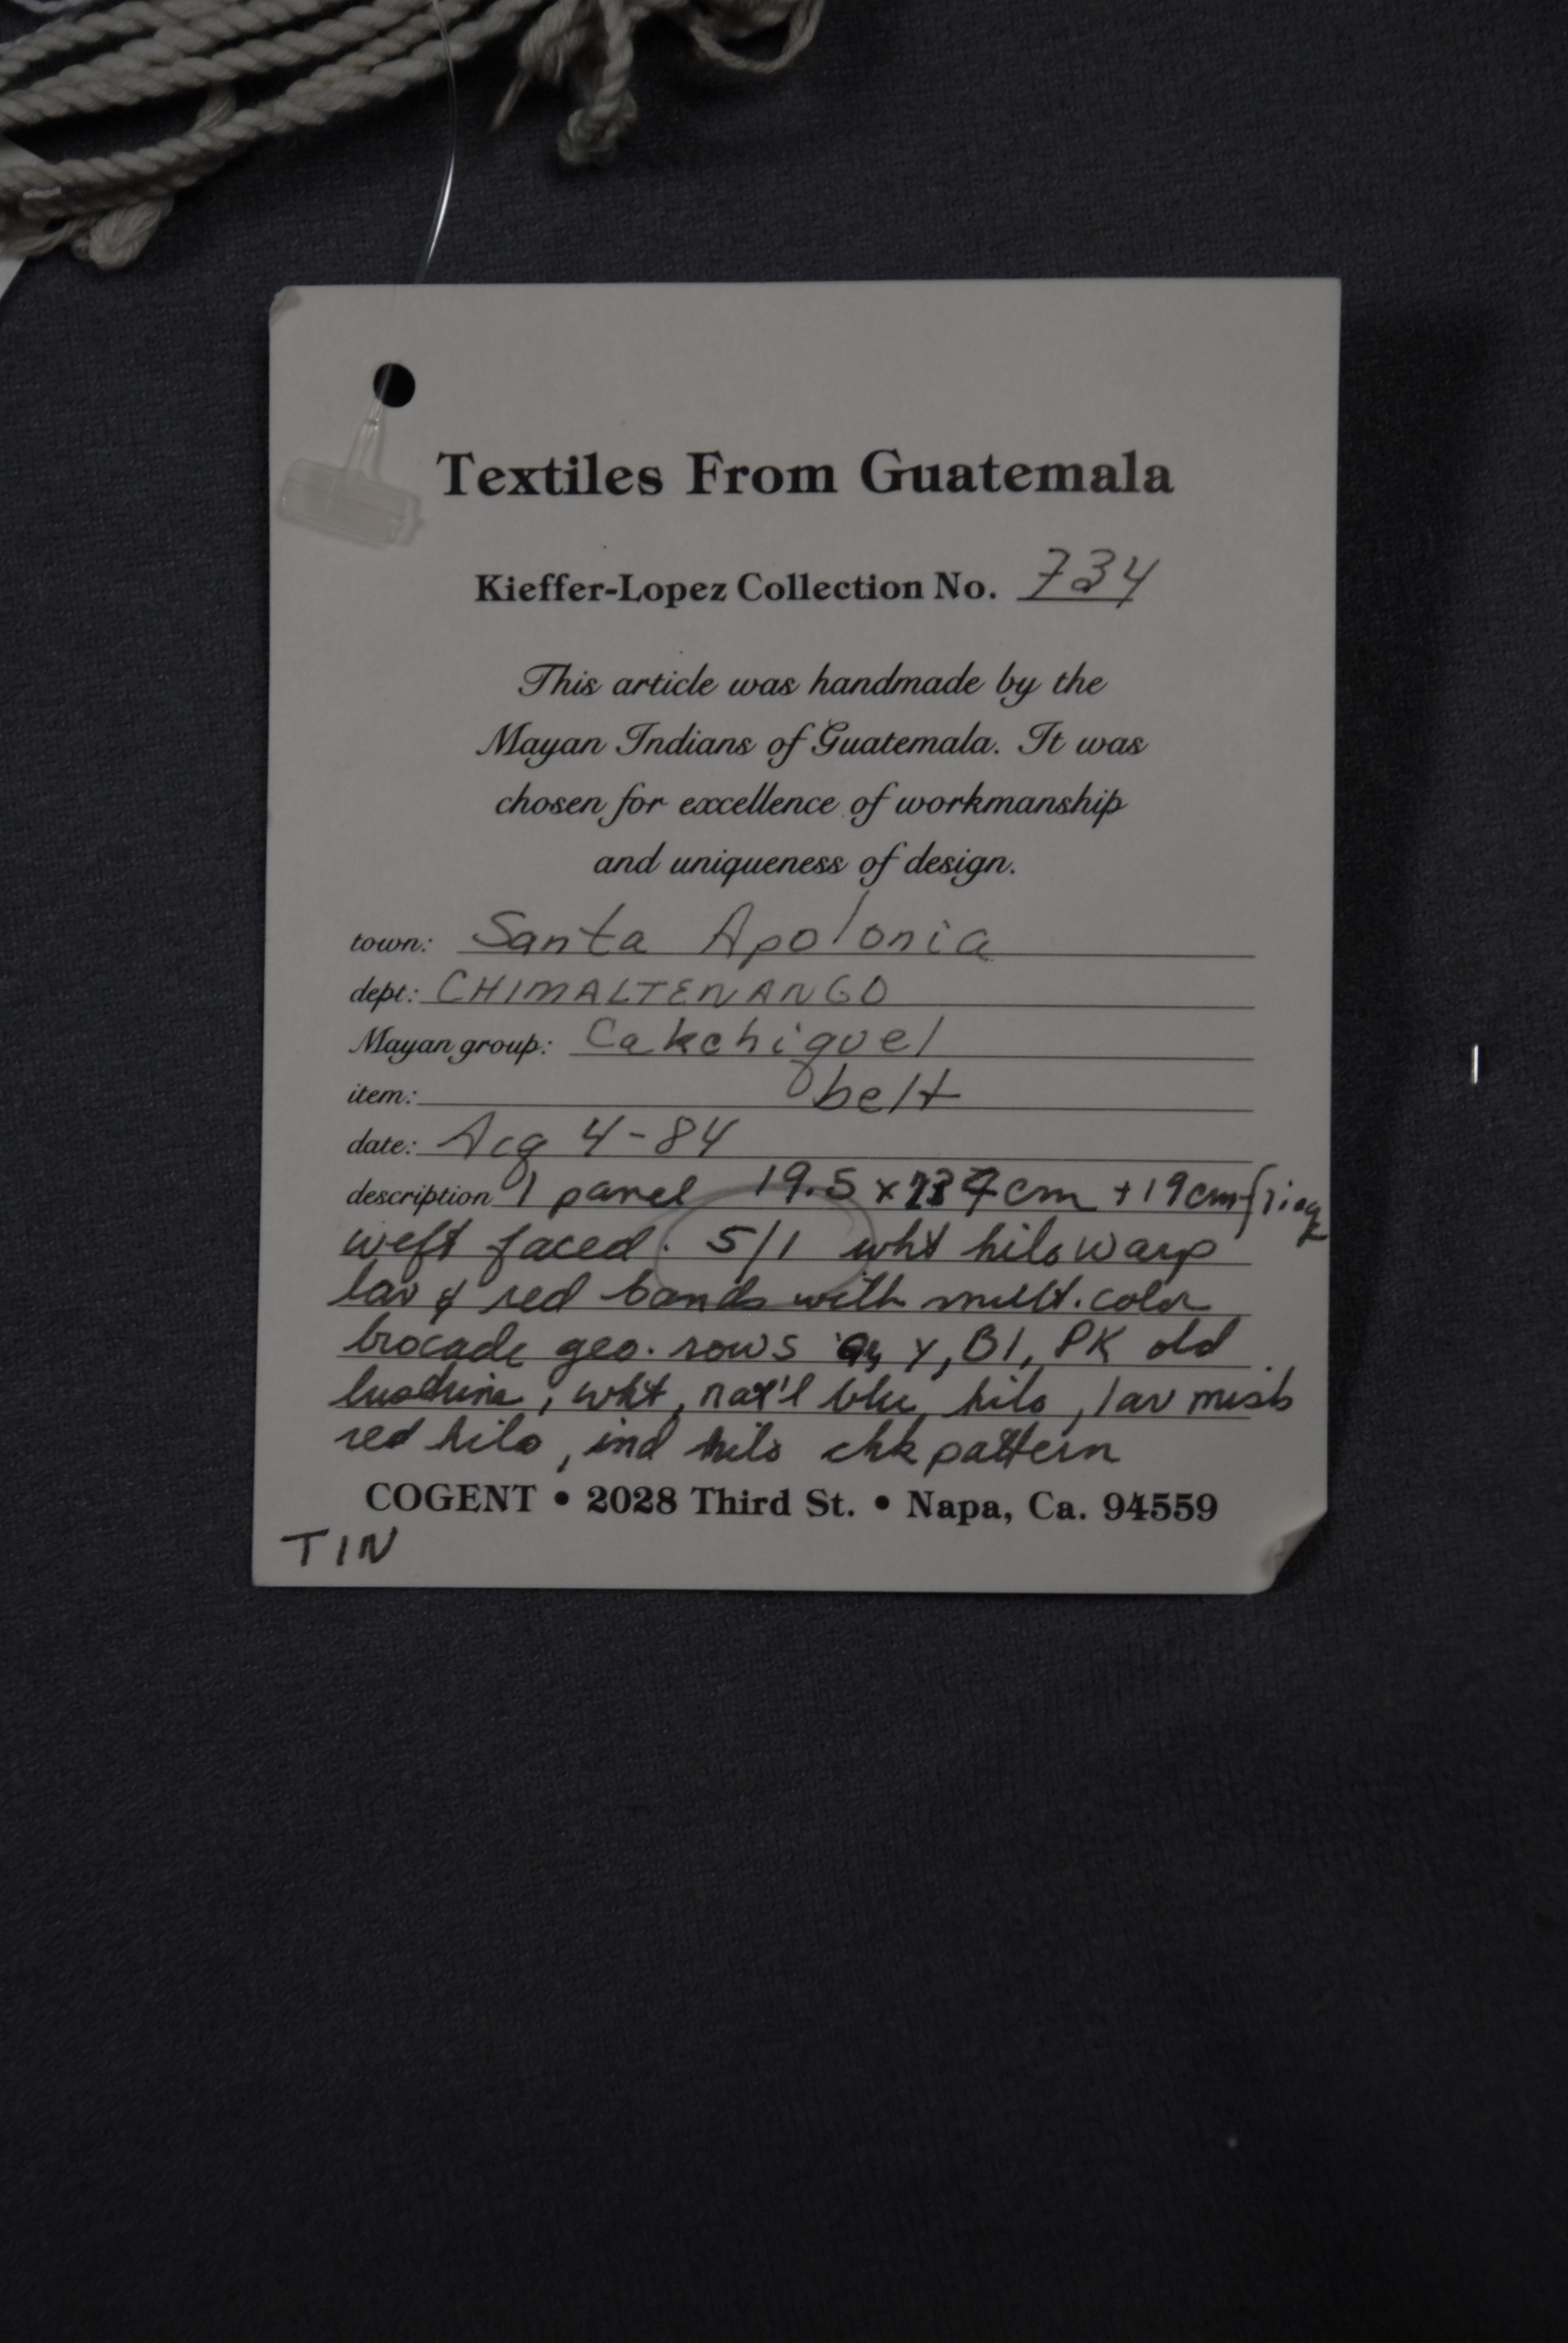 Textiles From Guatemala
Kieffer-Lopez Collection No. 734
This article was handmade by the
Mayan Indians of Guatemala. It was
chosen for excellence of workmanship
and uniqueness of design.
town: Santa Apolonia
dept: CHIMALTENANGO
Mayan group: Cakchiquel
item: belt
date: Acq 4-84
description 1 panel 19.5 x cm + 19cm fringe
weft faced. 5/1 wht hilo warp
lav & red bands with mult. color
brocade geo. rows Y, Bl, PK old
lustrina, wht, nat'l blu hilo, lav mish
red hilo, ind hilo chk pattern
COGENT • 2028 Third St. • Napa, Ca. 94559
TIN